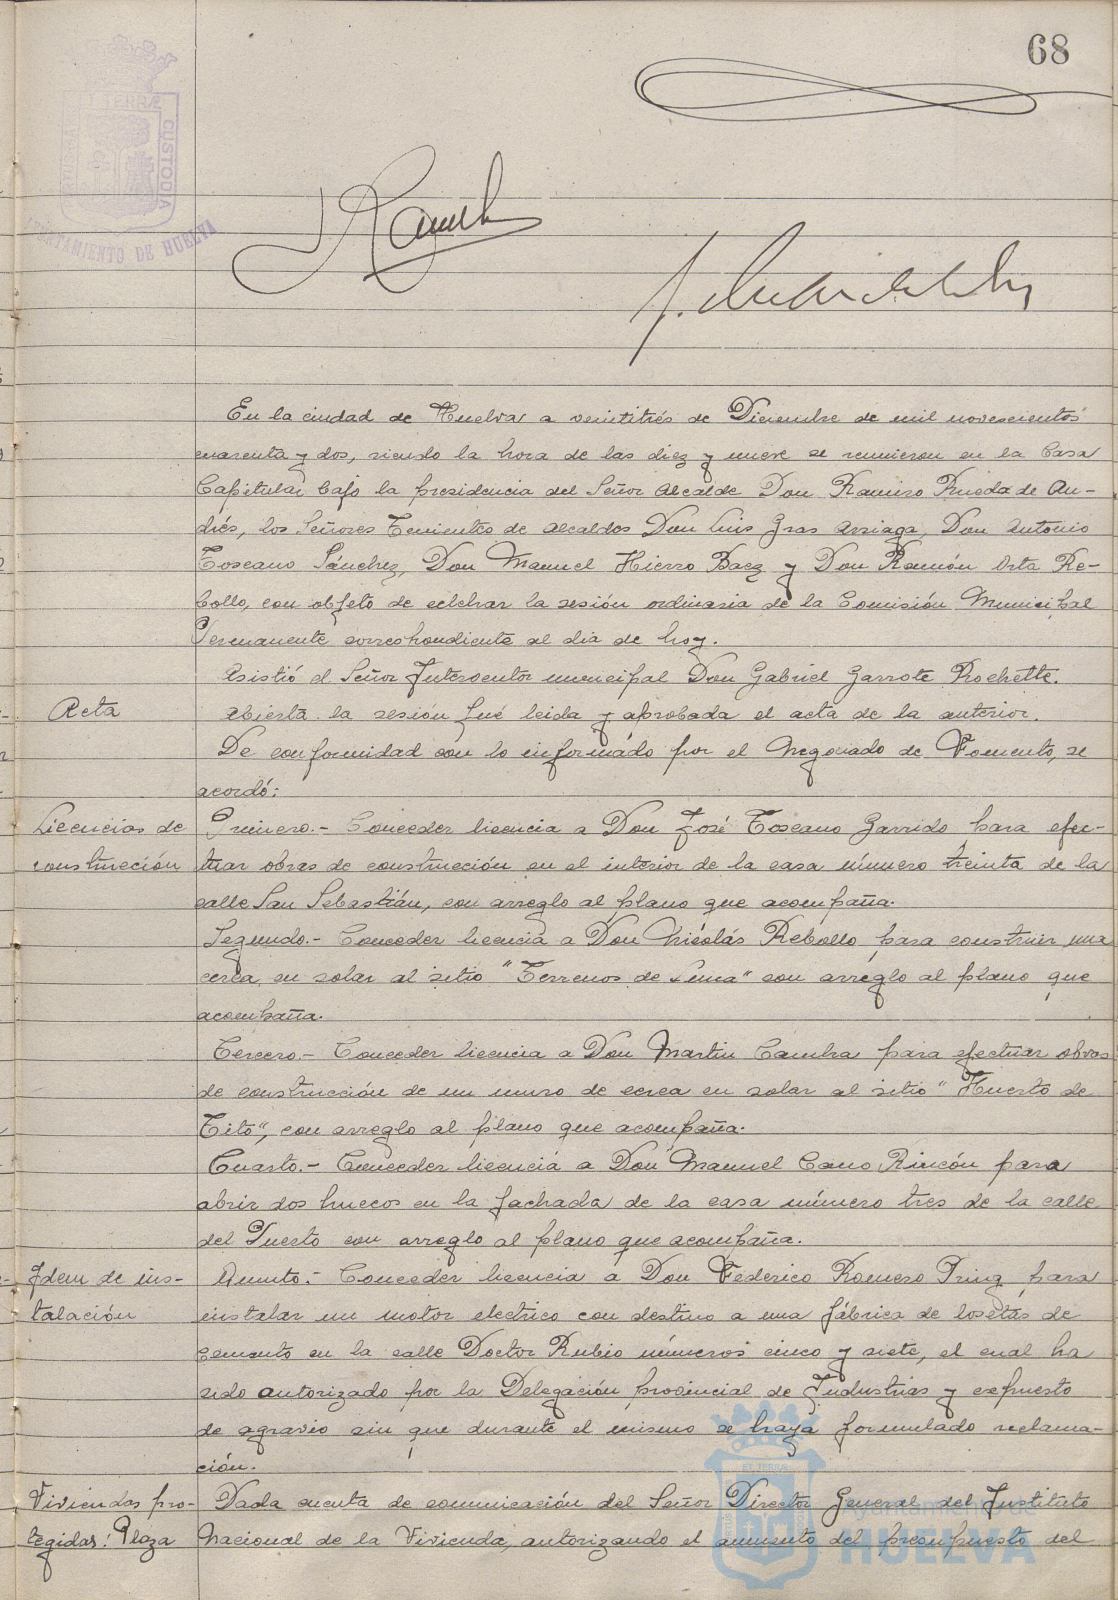 68
PORTUS MARIS ET TERRÆ CUSTODIA
AYUNTAMIENTO DE HUELVA
En la ciudad de Huelva a veintitrés de Diciembre de mil novescientos
cuarenta y dos, siendo la hora de las diez y nueve se reunieron en la Casa
Capitular bajo la presidencia del Señor Alcalde Don Ramiro Rueda de An-
drés, los Señores Tenientes de Alcaldes Don Luis Gras Arriaga, Don Antonio
Toscano Sánchez, Don Manuel Hierro Baez y Don Ramón Orta Re-
bollo, con objeto de celebrar la sesión ordinaria de la Comisión Municipal
Permanente correspondiente al dia de hoy.
Asistió el Señor Interventor municipal Don Gabriel Garrote Rochette.
Acta
Abierta la sesión fué leida y aprobada el acta de la anterior.
De conformidad con lo informado por el Negociado de Fomento, se
acordó:
Licencias de
construcción
Primero.- Conceder licencia a Don José Toscano Garrido para efec-
tuar obras de construcción en el interior de la casa número treinta de la
calle San Sebastián, con arreglo al plano que acompaña.
Segundo.- Conceder licencia a Don Nicolás Rebollo para construir una
cerca en solar al sitio "Terrenos de Lema" con arreglo al plano que
acompaña.
Tercero.- Conceder licencia a Don Martin Cambra para efectuar obras
de construcción de un muro de cerca en solar al sitio "Huerto de
Tito", con arreglo al plano que acompaña.
Cuarto.- Conceder licencia a Don Manuel Cano Rincón para
abrir dos huecos en la fachada de la casa número tres de la calle
del Puerto con arreglo al plano que acompaña.
Idem de ins-
talación
Quinto.- Conceder licencia a Don Federico Romero Pring para
instalar un motor electrico con destino a una fábrica de losetas de
cemento en la calle Doctor Rubio números cinco y siete, el cual ha
sido autorizado por la Delegación provincial de Industrias y expuesto
de agravio sin que durante el mismo se haya formulado reclama-
ción.
Viviendas pro-
tegidas: Plaza
Dada cuenta de comunicación del Señor Director General del Instituto
Nacional de la Vivienda, autorizando el aumento del presupuesto del
Ayuntamiento de
HUELVA